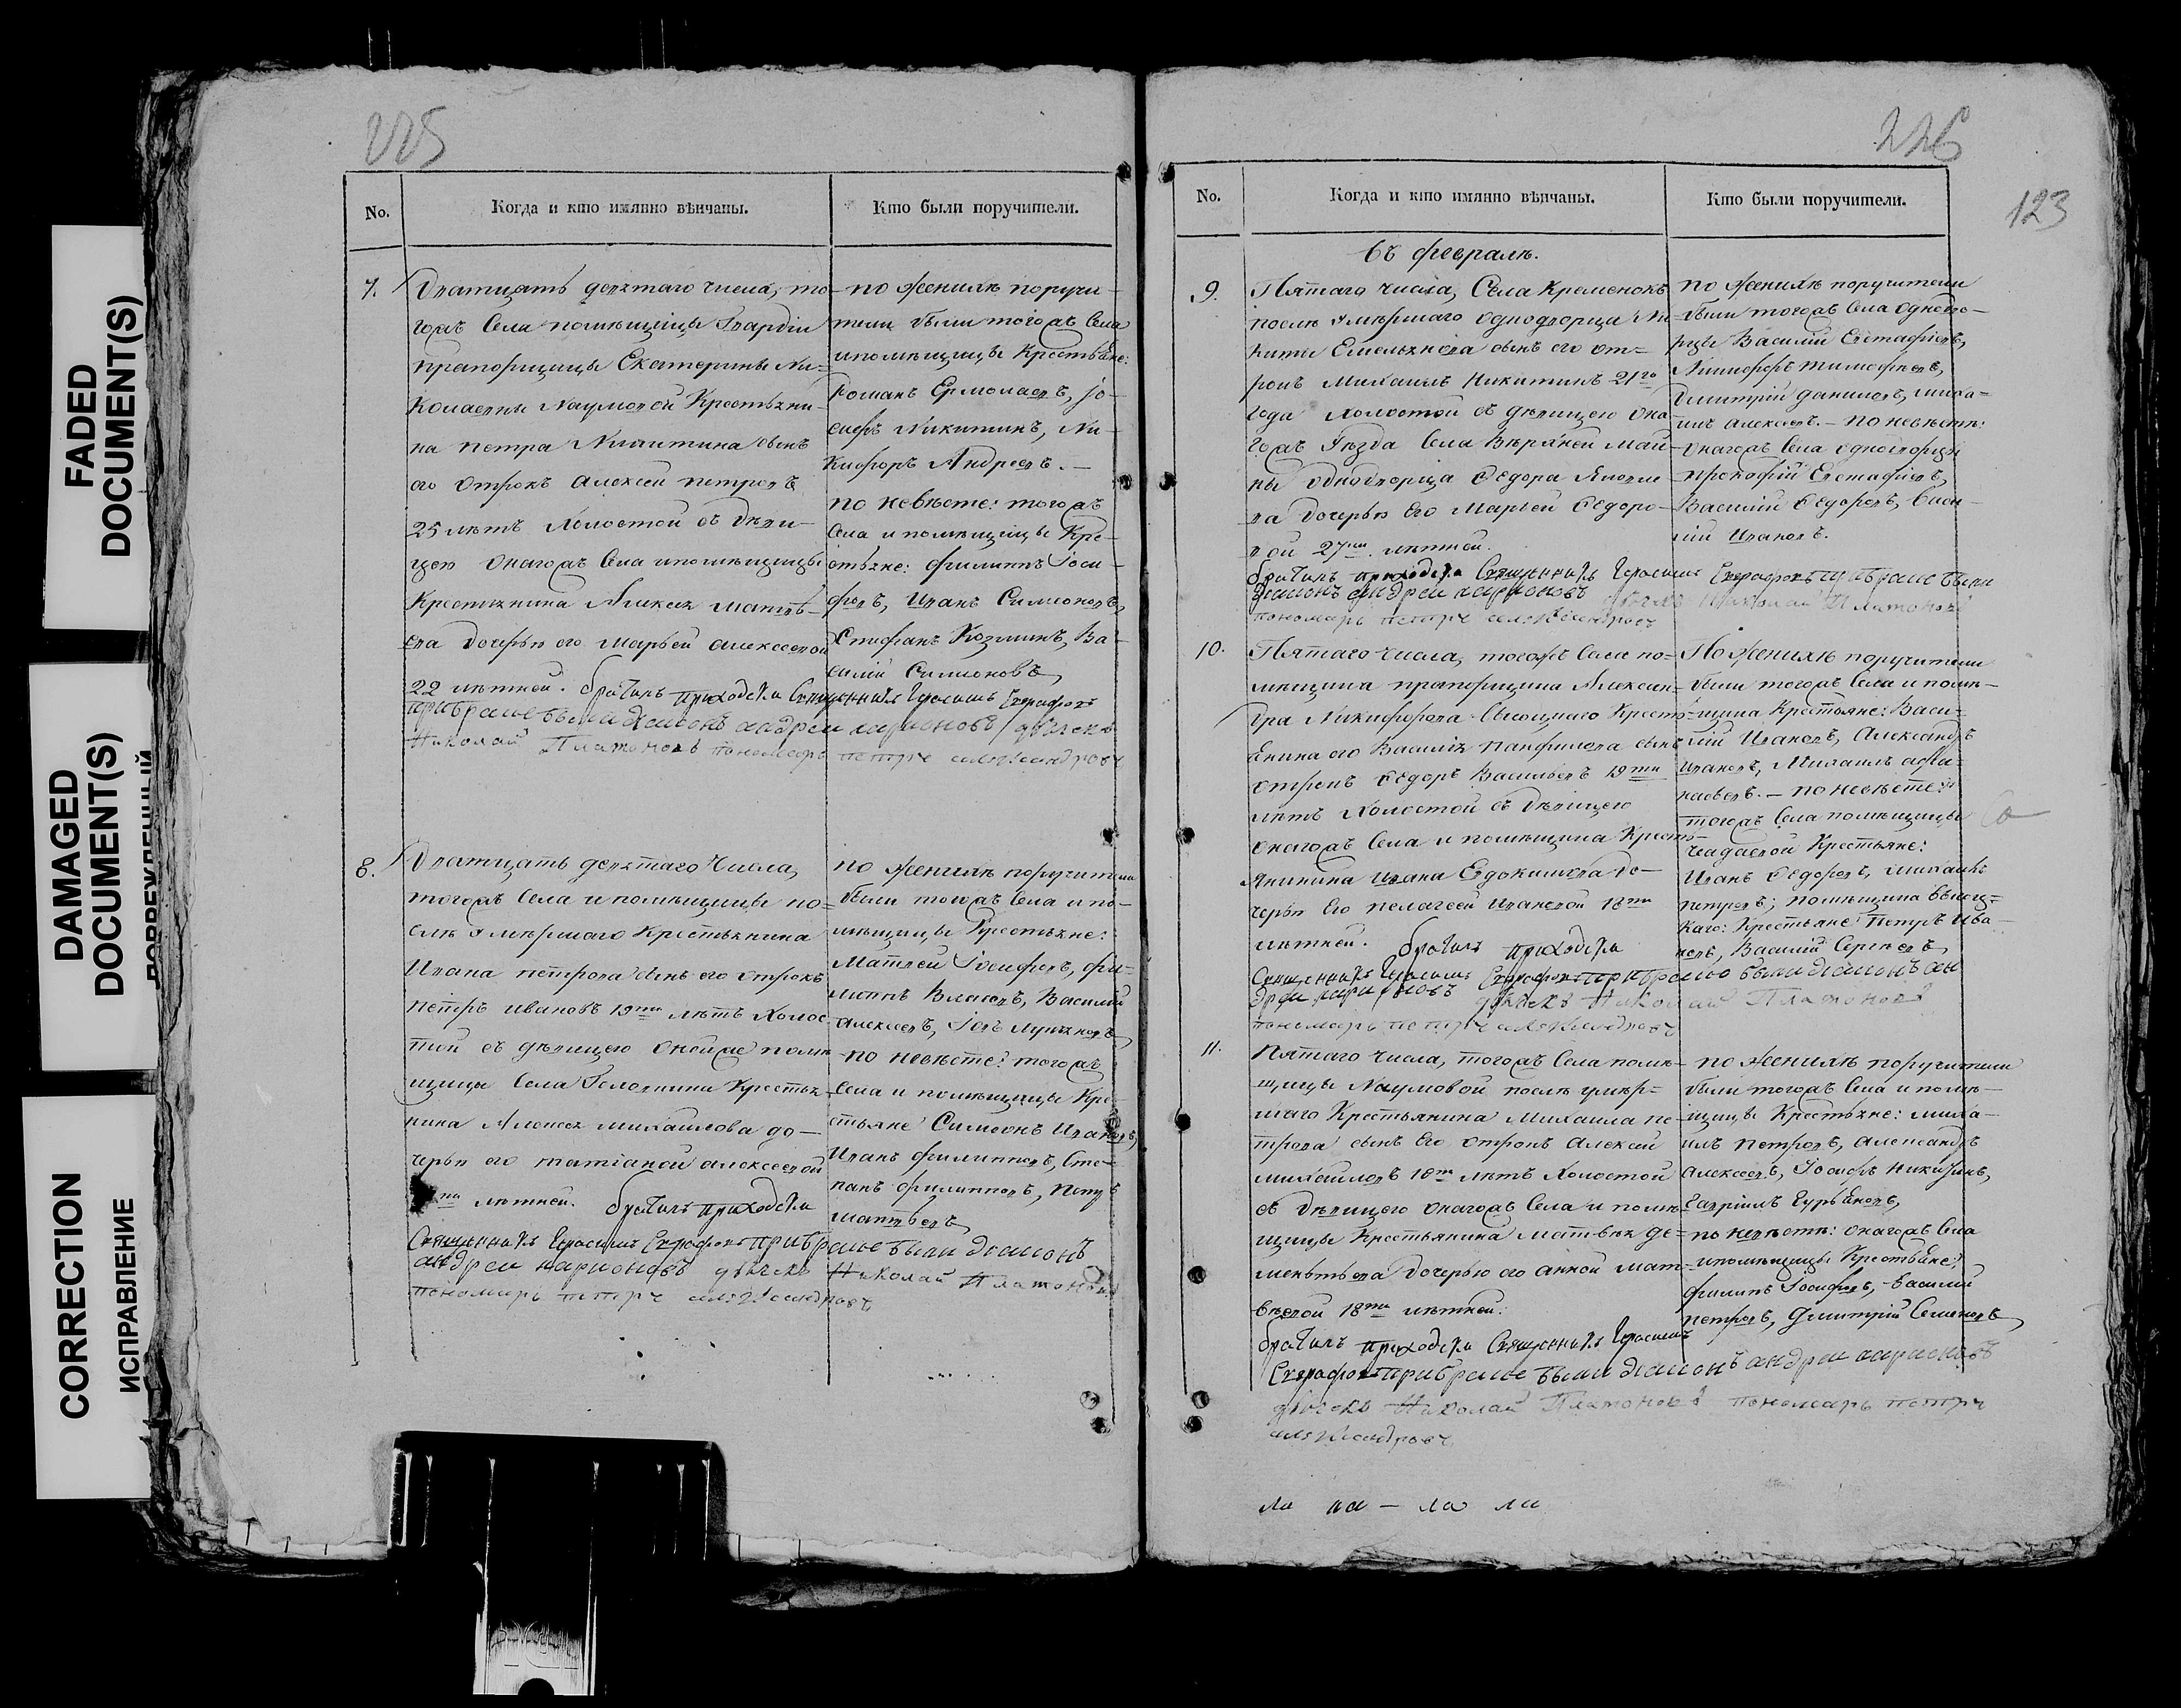 FADED
DOCUMENT(S)
DAMAGED
DOCUMENT(S)
CORRECTION
ИСПРАВЛЕНИЕ
225
No.
Когда и кто имянно вѣнчаны.
Кто были поручители.
7.
Дватцать девятаго числа, то-
гожъ Села помѣщицы Гвардіи
прапорщицы Екатерины Ни-
колаевны Наумовой Крестьяни-
на петра Никитина сынъ
его отрокъ Алексей петровъ
25 лѣтъ Холостой съ дѣви-
цею онагожъ Села ипомѣщицы
Крестьянина Алексея Матвѣ-
ева дочерью его Марьей алексеевой
22 лѣтней. бралъ приходски Священникъ Герасимъ
при браке были диаконъ андреи ларионовъ дьячекъ
Николай Платоновъ пономарь петръ александровъ
по женихѣ поручи-
тели были тогожъ Села
ипомѣщицы Крестьяне:
Романъ Ермолаевъ, Іо-
сифъ Никитинъ, Ни-
кифоръ Андреевъ.—
по невѣсте: тогожъ
Села и помѣщицы Кре-
стьяне: филиппъ Іоси-
фовъ, Иванъ Симионовъ,
Стефанъ Козминъ, Ва-
силій Симионовъ,
8.
Дватцать девятаго Числа,
тогожъ Села и помѣщицы по-
слѣ умѣршаго Крестьянина
Ивана петрова сынъ его отрокъ
петръ ивановъ 19ти лѣтъ Холос-
той съ дѣвицею онойже помѣ-
щицы Села Головкина Крестья-
нина Алексея михайлова до-
черью его татіаной алексеевой
лѣтней. приходски
Священникъ Герасимъ при браке были диаконъ
андреи ларионовъ дьячекъ Николай Платоновъ
пономарь петръ александровъ
по женихѣ поручители
были тогожъ Села и по-
мѣщицы Крестьяне:
Матвей Іосифовъ, фи-
липпъ Власовъ, Василій
алексеевъ, Іовъ лукяновъ,
по невѣсте: тогожъ
Села и помѣщицы Кре-
стьяне Симеонъ Ивановъ,
Иванъ филипповъ, Сте-
панъ филипповъ, Петръ
матвѣевъ,
226
123
No.
Когда и кто имянно вѣнчаны.
Кто были поручители.
въ февралѣ.
9.
Пятаго числа, Села Кременокъ
послѣ умѣршаго однодворца Ни-
киты Емельянова сынъ его от-
рокъ Михаилъ Никитинъ 21го
года холостой съ дѣвицею она-
гожъ уѣзда Села Вѣрхней Май-
ны однодворца Ѳедора Яковле-
ва дочерью Его Марьей Ѳедоро-
вой 27ми лѣтней.
приходски Священникъ Герасимъ при браке были
диаконъ андреи ларионовъ дьячекъ Николай Платоновъ
пономарь петръ александровъ
по женихѣ поручители
были тогожъ Села однодво-
рцы Василій Евстафіевъ,
Никифоръ тимофѣевъ,
Дмитрій даниловъ, миха-
илъ алексеевъ.— по невѣсте:
онагожъ Села однодворцы
прокофій Евстафіевъ,
Василій Ѳедоровъ, Васи-
лій Ивановъ.
10.
Пятаго числа, тогожъ Села по-
мѣщика прапорщика Алексан-
дра Никифорова Крестья-
нина его Василья панфилова сынъ
отрокъ Ѳедоръ Васильевъ 19ти
лѣтъ Холостой съ дѣвицею
онагожъ Села и помѣщика Кресть-
янина Ивана Евдокимова до-
черью Его пелагеей Ивановой 18ти
лѣтней. приходски
Священникъ Герасимъ при браке были диаконъ ан
дреи ларионовъ дьячекъ Николай Платоновъ
пономарь петръ александровъ
По женихѣ поручители
были тогожъ Села и помѣ-
щика Крестьяне: Васи-
лій Ивановъ, Александръ
Ивановъ, Михаилъ афа-
насьевъ.— по невѣсте:
тогожъ Села помѣщицы
Крестьяне:
Иванъ Ѳедоровъ, михаилъ
петровъ; помѣщика
Крестьяне Петръ Ива-
новъ, Василій Сергѣевъ,
11.
Пятаго числа, тогожъ Села помѣ-
щицы Наумовой послѣ умѣр-
шаго Крестьянина Михаила пе-
трова сынъ Его отрокъ Алексей
михайловъ 18ти лѣтъ Холостой
съ дѣвицею онагожъ Села и помѣ-
щицы Крестьянина матвѣя де-
ментьева дочерью его анной мат-
вѣевой 18ти лѣтней.
приходски Священникъ Герасимъ
при браке были диаконъ андреи ларионовъ
дьячекъ Николай Платоновъ пономарь петръ
александровъ
по женихѣ поручители
были тогожъ Села и помѣ-
щицы Крестьяне: миха-
илъ петровъ, александръ
алексеевъ, Іосифъ Никитинъ,
Гавріилъ Гурьяновъ,
по невѣсте: онагожъ Села
ипомѣщицы Крестьяне:
филипъ Іосифовъ, василій
петровъ, Дмитрій Семеновъ,